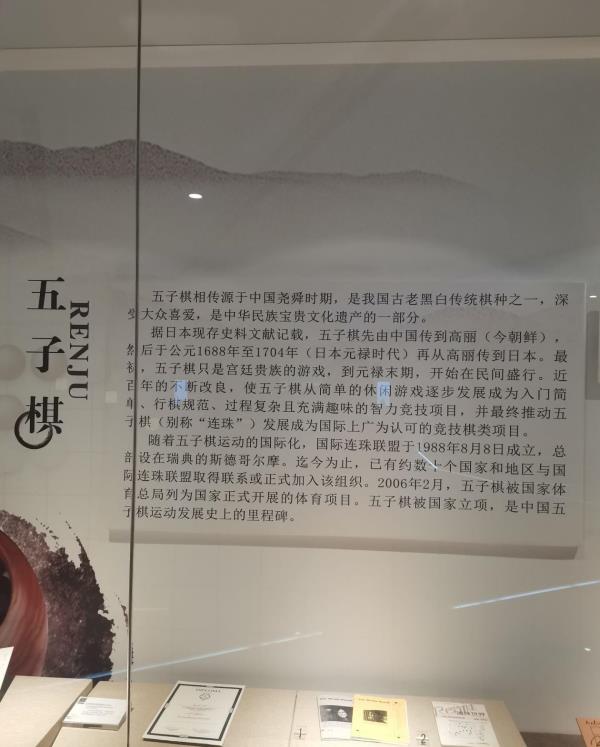 五子棋
RENJU
五子棋相传源于中国尧舜时期，是我国古老黑白传统棋种之一，深
受大众喜爱，是中华民族宝贵文化遗产的一部分。
据日本现存史料文献记载，五子棋先由中国传到高丽（今朝鲜），
然后于公元1688年至1704年（日本元禄时代）再从高丽传到日本。最
初，五子棋只是宫廷贵族的游戏，到元禄末期，开始在民间盛行。近
百年的不断改良，使五子棋从简单的休闲游戏逐步发展成为入门简
单、行棋规范、过程复杂且充满趣味的智力竞技项目，并最终推动五
子棋（别称“连珠”）发展成为国际上广为认可的竞技棋类项目。
随着五子棋运动的国际化，国际连珠联盟于1988年8月8日成立，总
部设在瑞典的斯德哥尔摩。迄今为止，已有约数十个国家和地区与国
际连珠联盟取得联系或正式加入该组织。2006年2月，五子棋被国家体
育总局列为国家正式开展的体育项目。五子棋被国家立项，是中国五
子棋运动发展史上的里程碑。
DIPLOMA
2